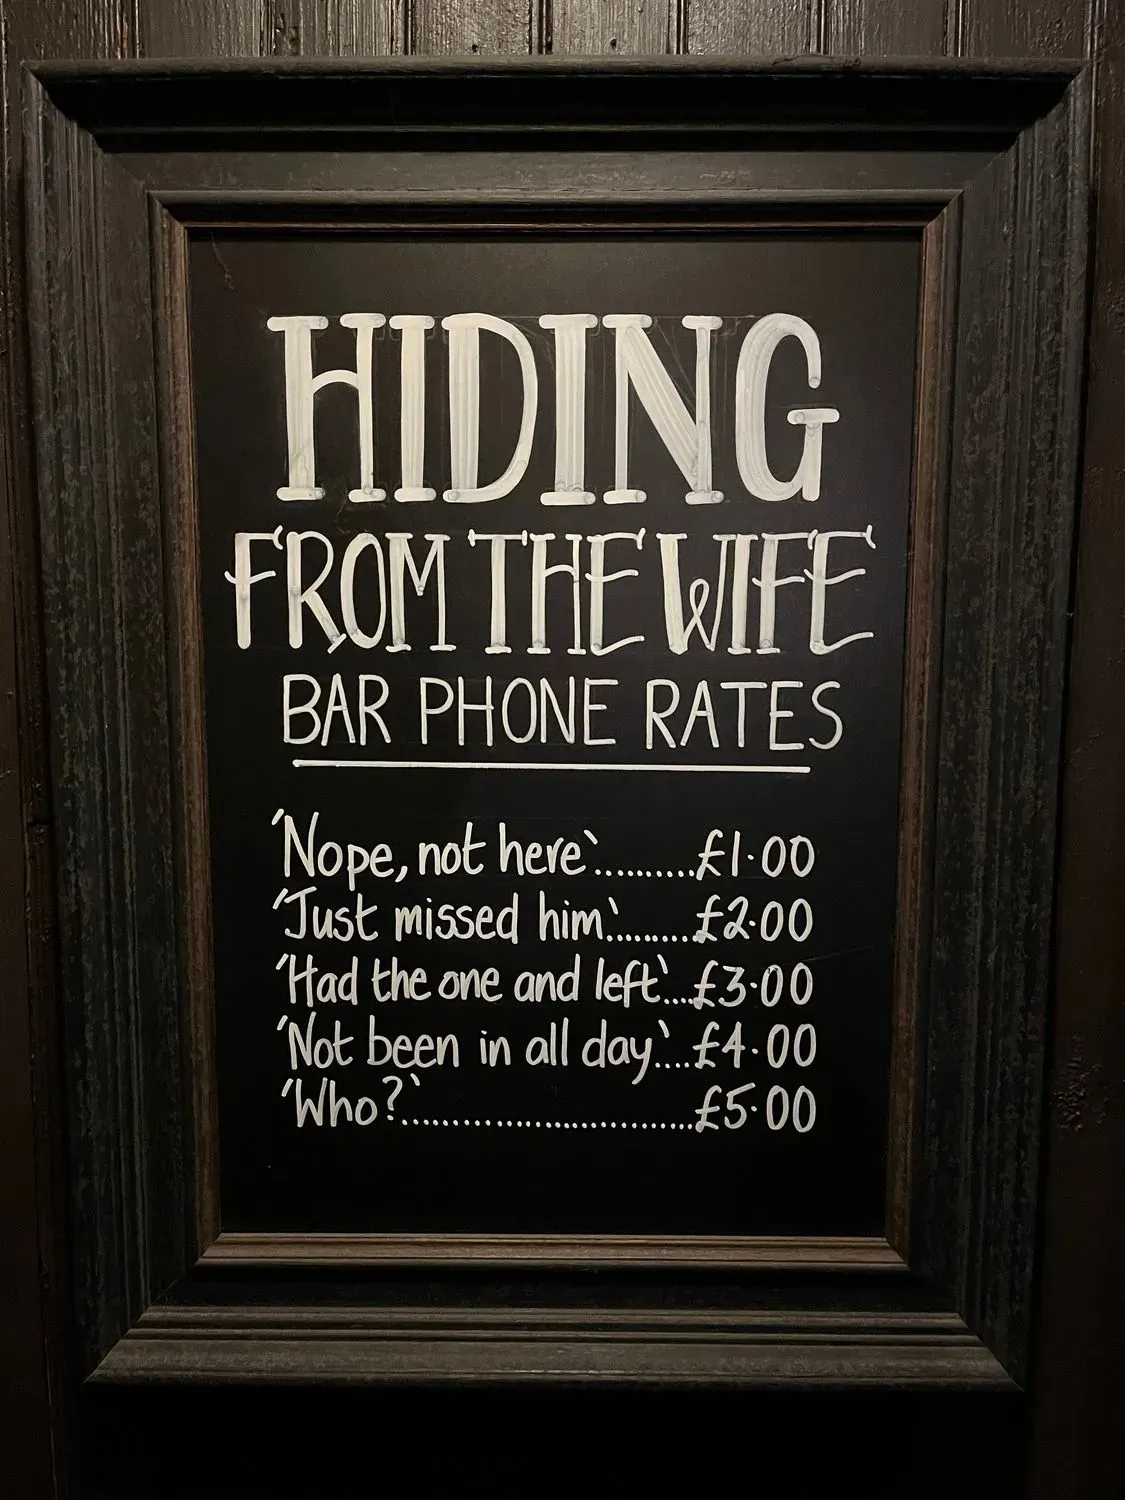 HIDING
FROM THE WIFE
BAR PHONE RATES
'Nope, not here'..........£1·00
'Just missed him'.........£2·00
'Had the one and left'....£3·00
'Not been in all day'....£4·00
'Who?'..............................£5·00